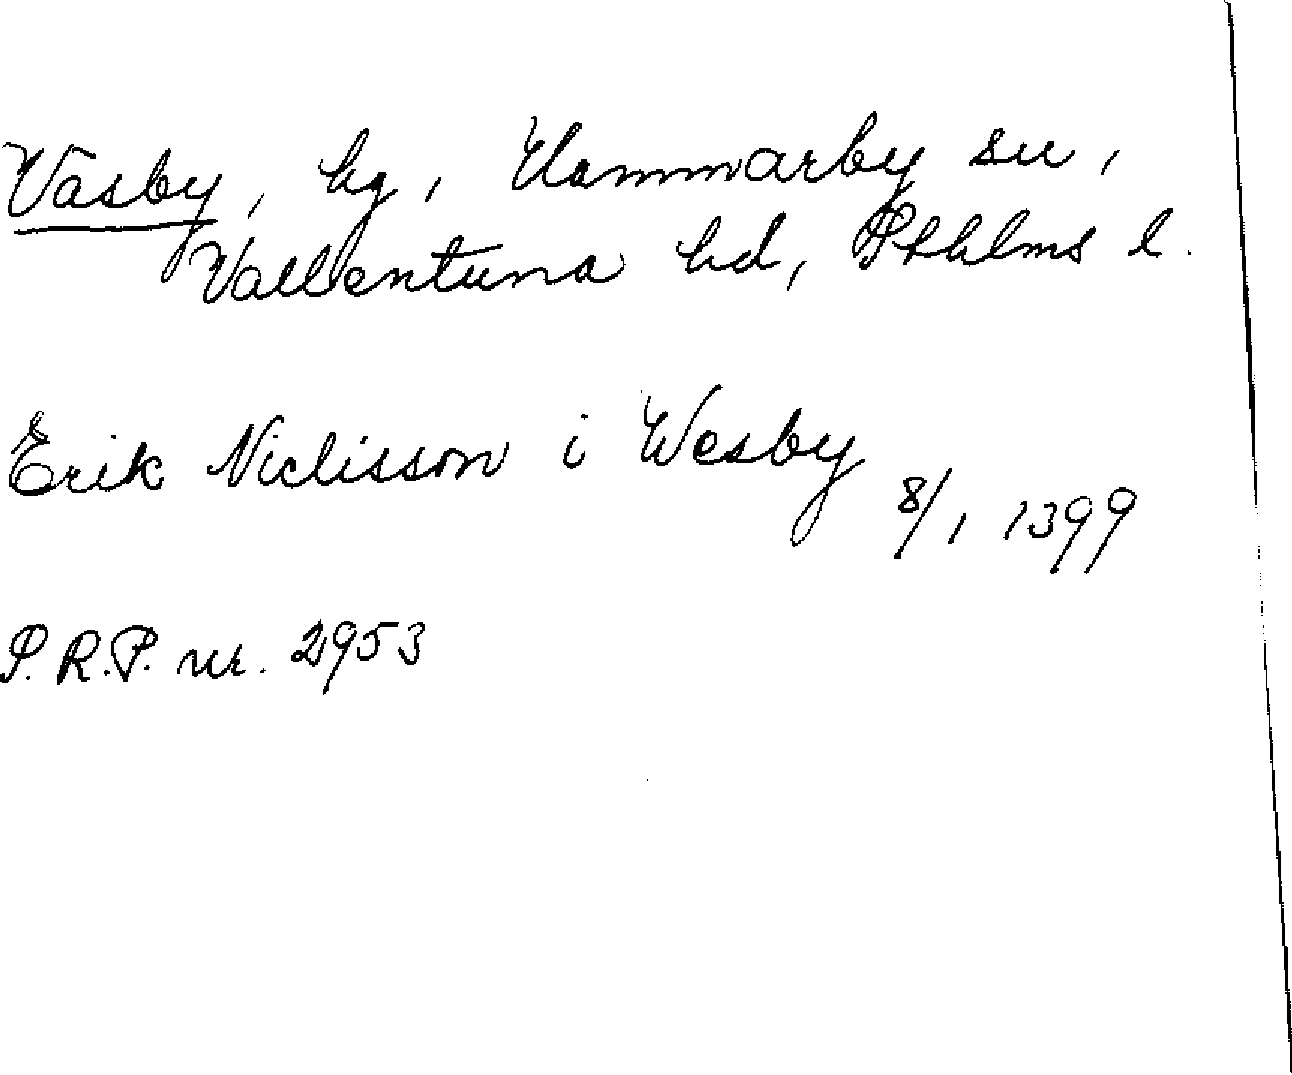 Väsby, hg, Hammarby sn,
Vallentuna hd, Sthlms l.
Erik Niclisson i Wesby 8/1 1399
S.R.P. nr. 2953